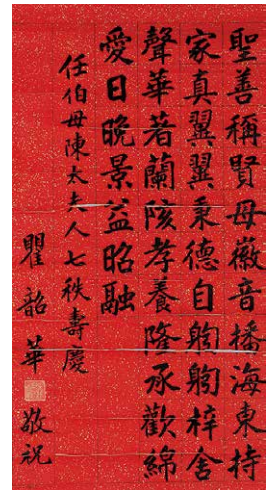 聖善稱賢母徽音播海東持
家真翼翼秉德自躬躬梓舍
聲華著蘭陔孝養隆承歡綿
愛日晚景益昭融
任伯母陳太夫人七秩壽慶
瞿韶華敬祝